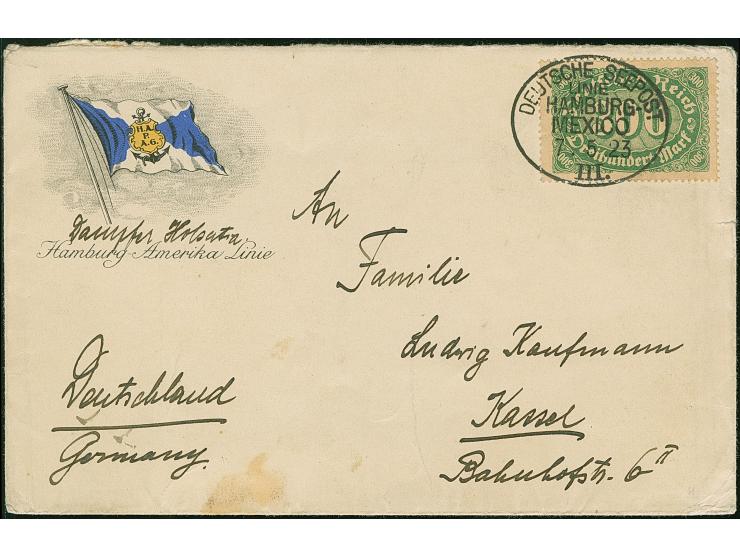 H.A.
P.
A.G.
Dampfer Holsatia
Hamburg-Amerika Linie
DEUTSCHE SEEPOST
LINIE
HAMBURG-
MEXICO
7.5.23
III.
300
Reich
300
Dreihundert Mark
300
An
Familie
Ludwig Kaufmann
Kassel
Bahnhofstr. 6 II
Deutschland
Germany.